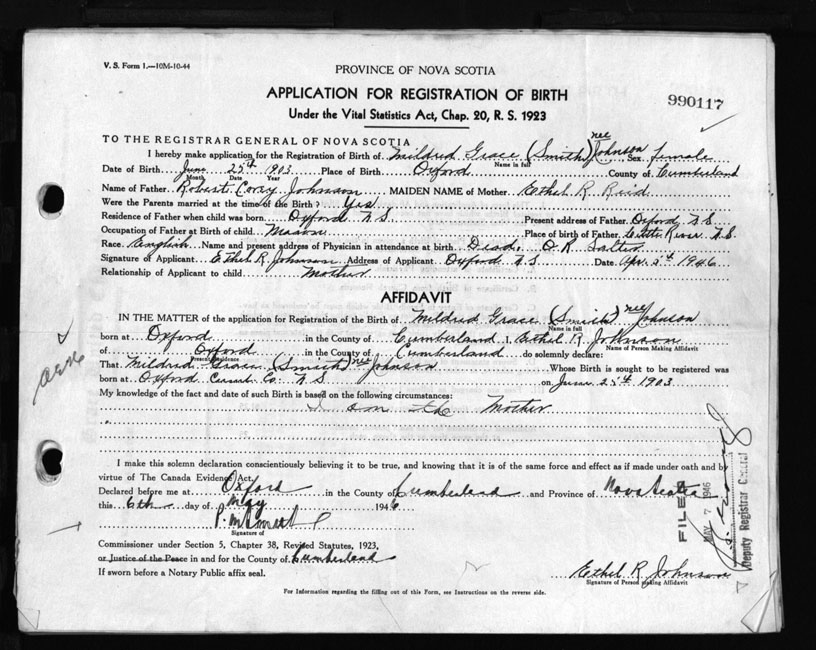 V. S. Form 1.—10M-10-44
PROVINCE OF NOVA SCOTIA
APPLICATION FOR REGISTRATION OF BIRTH
990117
Under the Vital Statistics Act, Chap. 20, R. S. 1923
TO THE REGISTRAR GENERAL OF NOVA SCOTIA
I hereby make application for the Registration of Birth of Mildred Grace (Smith) nee Johnson Sex female
Name in full
Date of Birth June 25th 1903 Place of Birth Oxford County of Cumberland
Month Day Year
Name of Father Robert Coray Johnson MAIDEN NAME of Mother Ethel R Reid
Were the Parents married at the time of the Birth? Yes
Residence of Father when child was born Oxford N.S. Present address of Father Oxford N.S.
Occupation of Father at Birth of child Mason Place of birth of Father River N.S.
Race English Name and present address of Physician in attendance at birth Dead. Salter
Signature of Applicant Ethel R. Johnson Address of Applicant Oxford N.S Date Apr. 5th 1946
Relationship of Applicant to child Mother
AFFIDAVIT
IN THE MATTER of the application for Registration of the Birth of Mildred Grace (Smith) nee Johnson
Name in full
born at Oxford in the County of Cumberland I, Ethel R Johnson
Name of Person Making Affidavit
of Oxford in the County of Cumberland do solemnly declare:
Present Residence
That Mildred Grace (Smith) nee Johnson Whose Birth is sought to be registered was
born at Oxford Co. N.S on June 25th 1903
My knowledge of the fact and date of such Birth is based on the following circumstances:
I am the Mother
I make this solemn declaration conscientiously believing it to be true, and knowing that it is of the same force and effect as if made under oath and by
virtue of The Canada Evidence Act.
Declared before me at Oxford in the County of Cumberland and Province of Nova Scotia
this 6th day of May 1946
Signature of
Commissioner under Section 5, Chapter 38, Revised Statutes, 1923,
or Justice of the Peace in and for the County of Cumberland
If sworn before a Notary Public affix seal.
Ethel R Johnson
Signature of Person making Affidavit
For Information regarding the filling out of this Form, see Instructions on the reverse side.
FILED
MAY 7 1946
Deputy Registrar General